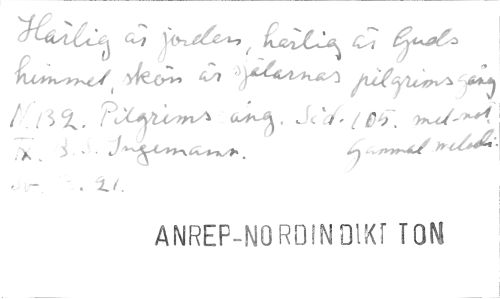 Härlig är jorden, härlig är Guds
himmel, skön är själarnas pilgrimsgång
N. 132. Pilgrims ång. Sid. 105. mel-not.
IX. B. S. Ingemann. Gammal melodi.
21.
ANREP-NORDIN DIKT TON